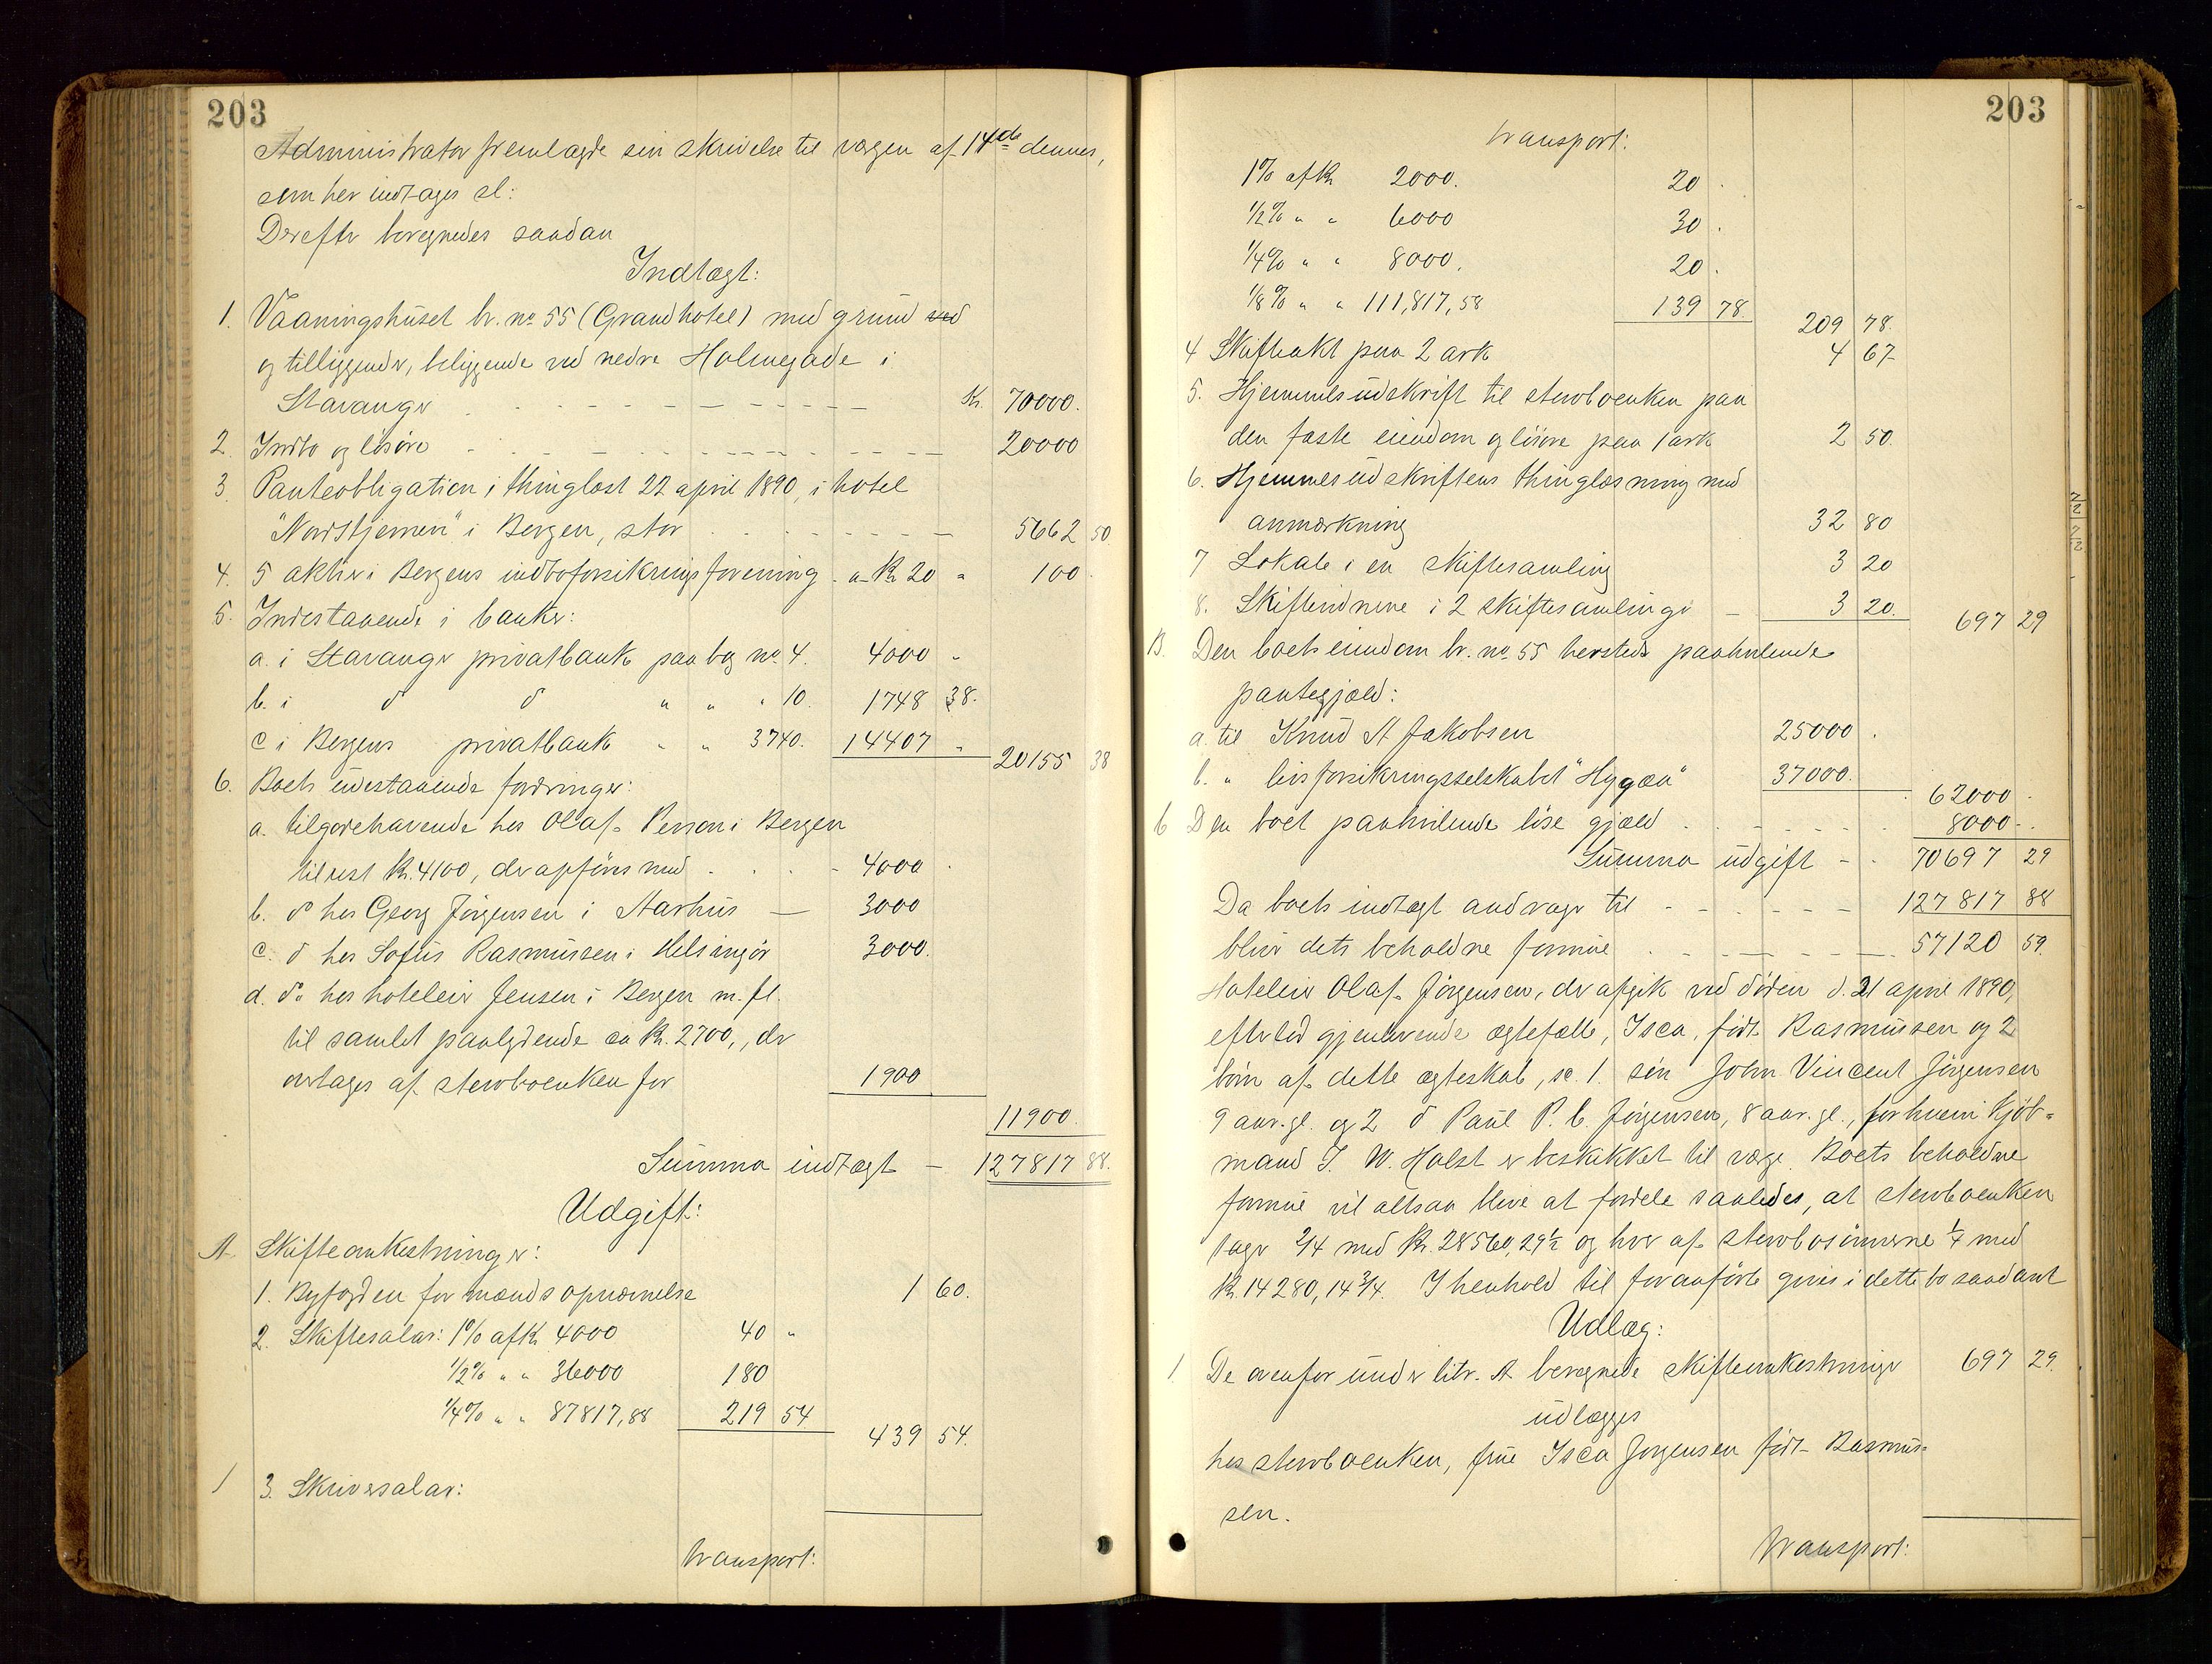 203
Administrator fremlagde sin skrivelse til værgen af 14de dennes,
som her indtages sl:
Derefter beregnedes saadan
Indtægt:
1. Vaaningshuset br. no 55 (Grand hotel) med grund ved
og tilliggender, beliggende ved nedre Holmegade i
Stavanger Kr. 70000.
2. Indbo og løsøre 20000
3. Panteobligation, thinglæst 22 april 1890, i hotel
"Nordstjernen" i Bergen, stor 5662 50
4. 5 aktier i Bergens indboforsikringsforening a Kr 20 " 100.
5. Indestaaende i banker:
a. i Stavanger privatbank paa bog no. 4. 4000 "
b. i do do " " " 10. 1748 38.
c i Bergens privatbank " " 3740. 14407 " 20155 38
6. Boets udestaaende fordringer:
a. tilgodehavende hos Olaf Person i Bergen
til rest Kr. 4100, der opføres med 4000
b. do hos Georg Jørgensen i Aarhus — 3000
c. do hos Sofus Rasmussen i Helsingør 3000.
d. do hos hoteleier Jensen i Bergen m. fl.
til samlet paalydende ca Kr. 2700,, der
overtages af sterboenken for 1900
11900.
Summa indtægt — 127817 88.
Udgift:
A. Skifteomkostninger:
1. Byfogden for mænds opnævnelse 1 60.
2. Skiftesalær: 1% af Kr 4000 40 "
1/2% " " 36000 180
1/4% " " 87817,88 219 54 439 54.
3. Skriversalær:
Transport:
203
Transport:
1% af Kr 2000. 20.
1/2% " " 6000 30.
1/4% " " 8000. 20.
1/8% " " 111,817,58 139 78. 209 78.
4 Skifteakt paa 2 ark 4 67
5. Hjemmelsudskrift til sterboenken paa
den faste eiendom og løsøre paa 1 ark 2 50.
6. Hjemmelsudskriftens thinglæsning med
anmærkning 32 80
7 Lokale i en skiftesamling 3 20
8. Skiftevidnerne i 2 skiftesamlinger — 3 20. 697 29
B. Den boets eiendom br. no. 55 hersteds paahvilende
pantegjæld:
a. til Knud A Jakobsen 25000.
b. " livsforsikringsselskabet "Hygæa" 37000. 62000.
C Den boet paahvilende løse gjæld 8000 -.
Summa udgift - 70697 29
Da boets indtægt andrager til 127817 88
bliver dets beholdne formue 57120 59.
Hoteleier Olaf Jørgensen, der afgik ved døden d. 21 april 1890,
efterlod gjenlevende ægtefælle, Isca, født Rasmussen og 2
børn af dette ægteskab, sc. 1. søn John Vincent Jørgensen
9 aar. gl. og 2 do Paul P. C. Jørgensen, 8 aar. gl., for hvem Kjøb-
mand J. W. Holst er beskikket til værge. Boets beholdne
formue vil altsaa blive at fordele saaledes, at sterboenken
tager 2/4 med Kr. 28560,29½ og hver af sterbosønnerne ¼ med
Kr. 14280,14¾. I henhold til foranførte gives i dette bo saadant
Udlæg:
1. De ovenfor under litr. A beregnede skifteomkostninger 697 29.
udlægges
hos sterboenken, frue Isca Jørgensen født Rasmus-
sen.
Transport: